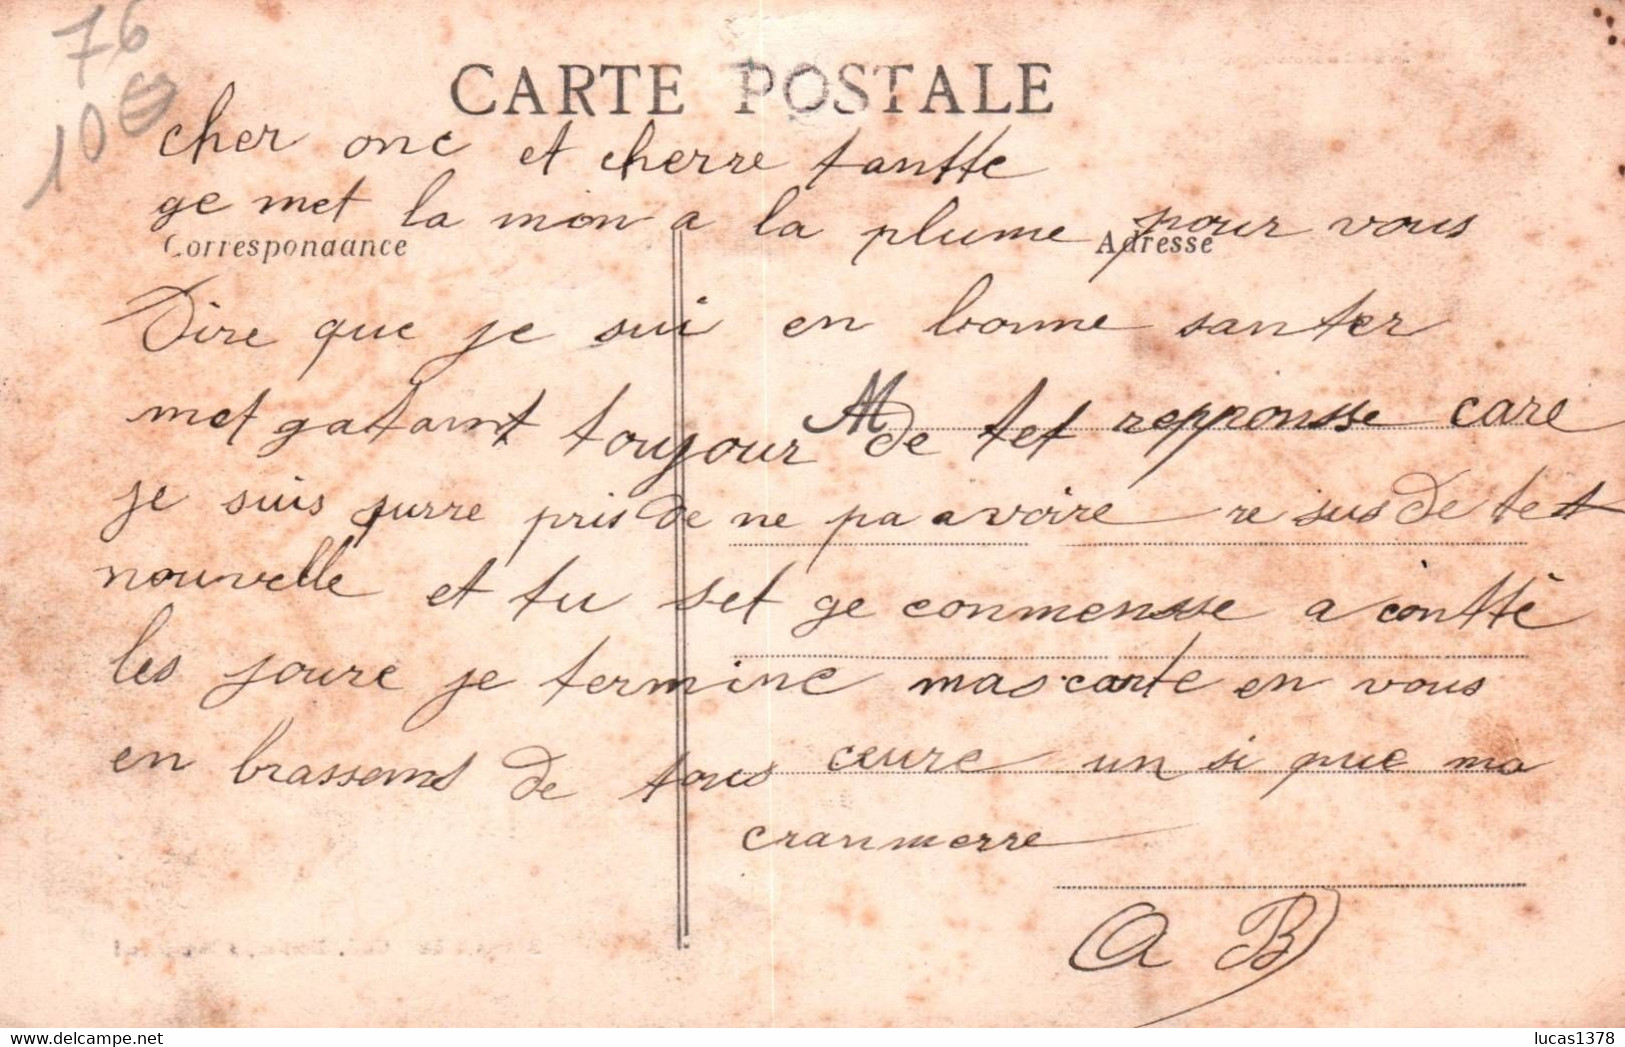 76
10€
CARTE POSTALE
cher onc et cherre tantte
ge met la mon a la plume pour vous
Correspondance
Adresse
Dire que je sui en bonne santer
met gatamt toujour de tet repponsse care
je suis surre pris de ne pa avoire re sus de tet
nouvelle et tu set ge conmensse a contté
les joure je termine mas carte en vous
en brassant de tous ceure un si que ma
cranmerre
A B
lucas1378